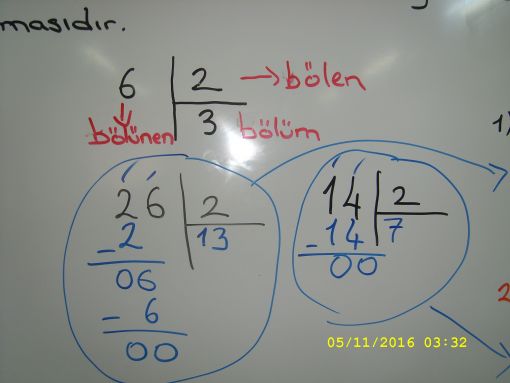 masıdır.
6 2 → bölen
bölünen 3 bölüm
26 2
- 2 13
06
- 6
00
14 2
- 14 7
00
1)
2
05/11/2016 03:32